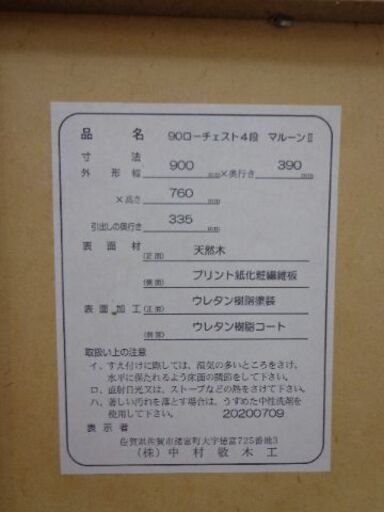 品 名 90ローチェスト4段 マルーンⅡ
寸 法
外形幅 900 mm×奥行き 390 mm
×高さ 760 mm
引出しの奥行き 335 mm
表面材(正面) 天然木
(側面) プリント紙化粧繊維板
表面加工(正面) ウレタン樹脂塗装
(側面) ウレタン樹脂コート
取扱い上の注意
イ、すえ付けに際しては、湿気の多いところをさけ、
水平に保たれるよう床面の調節をして下さい。
ロ、直射日光又は、ストーブなどの熱をさけて下さい。
ハ、著しい汚れを落とす場合は、うすめた中性洗剤を
使用して下さい。 20200709
表 示 者
佐賀県佐賀市諸富町大字徳富725番地3
(株) 中 村 敬 木 工